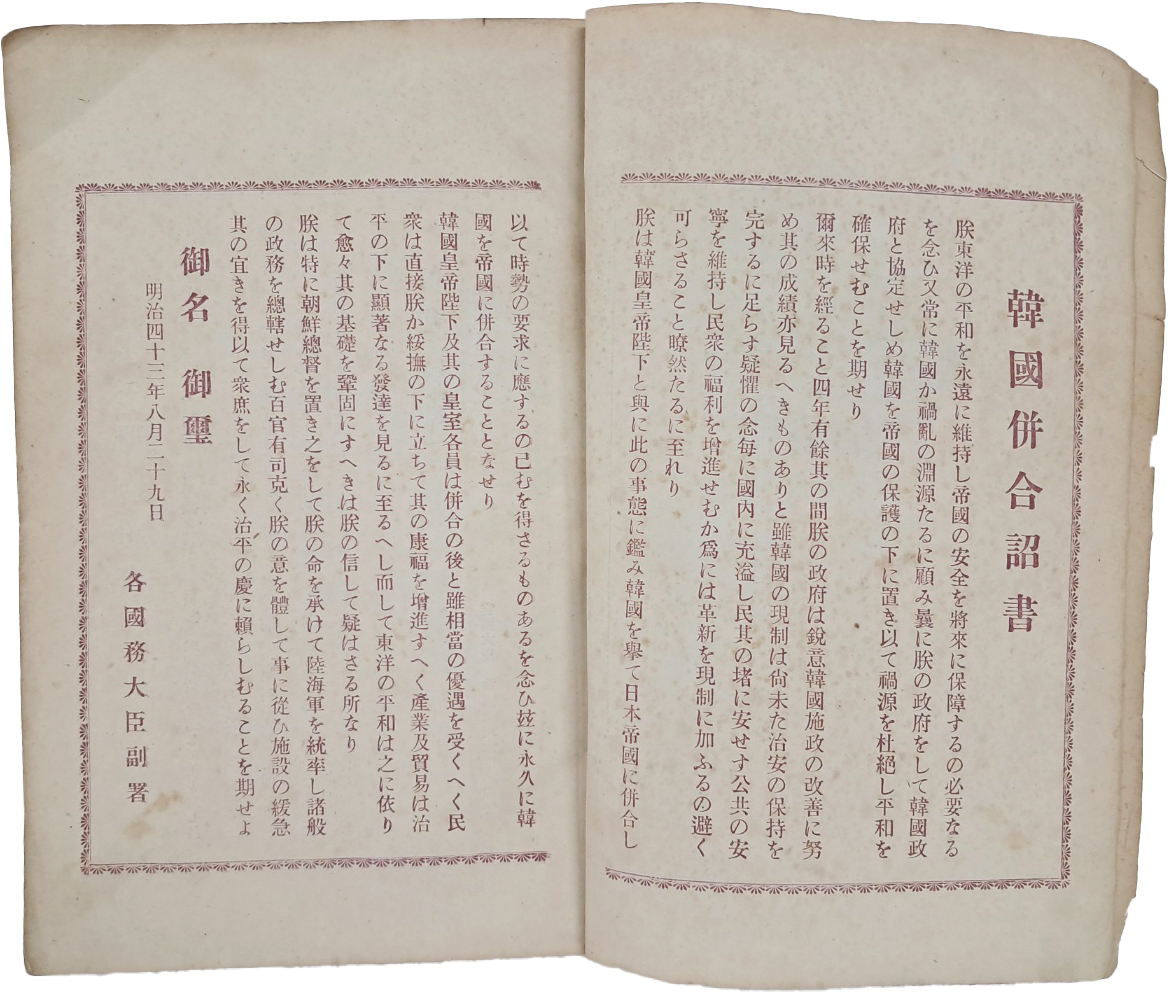 韓國併合詔書
朕東洋の平和を永遠に維持し帝國の安全を將來に保障するの必要なる
を念ひ又常に韓國か禍亂の淵源たるに顧み曩に朕の政府をして韓國政
府と協定せしめ韓國を帝國の保護の下に置き以て禍源を杜絕し平和を
確保せむことを期せり
爾來時を經ること四年有餘其の間朕の政府は銳意韓國施政の改善に努
め其の成績亦見るへきものありと雖韓國の現制は尙未た治安の保持を
完するに足らす疑懼の念每に國內に充溢し民其の堵に安せす公共の安
寧を維持し民衆の福利を增進せむか爲には革新を現制に加ふるの避く
可らさること瞭然たるに至れり
朕は韓國皇帝陛下と與に此の事態に鑑み韓國を擧て日本帝國に併合し
以て時勢の要求に應するの已むを得さるものあるを念ひ玆に永久に韓
國を帝國に併合することとなせり
韓國皇帝陛下及其の皇室各員は併合の後と雖相當の優遇を受くへく民
衆は直接朕か綏撫の下に立ちて其の康福を增進すへく產業及貿易は治
平の下に顯著なる發達を見るに至るへし而して東洋の平和は之に依り
て愈々其の基礎を鞏固にすへきは朕の信して疑はさる所なり
朕は特に朝鮮總督を置き之をして朕の命を承けて陸海軍を統率し諸般
の政務を總轄せしむ百官有司克く朕の意を體して事に從ひ施設の緩急
其の宜きを得以て衆庶をして永く治平の慶に賴らしむることを期せよ
御名 御璽
明治四十三年八月二十九日
各國務大臣副署